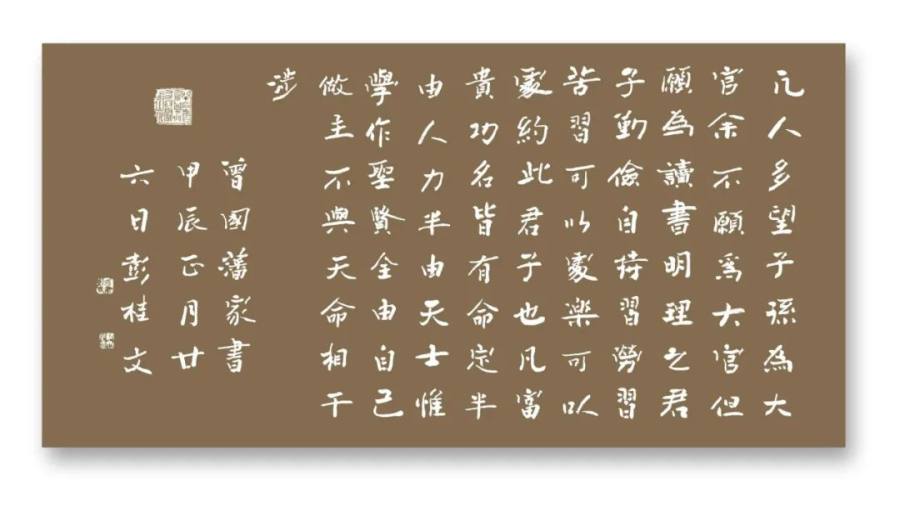 凡人多望子孫為大
官余不願為大官但
願為讀書明理之君
子勤儉自持習勞習
苦習可以處樂可以
處約此君子也凡富
貴功名皆有命定半
由人力半由天士惟
學作聖賢全由自己
做主不與天命相干
涉
曾國藩家書
甲辰正月廿
六日彭桂文